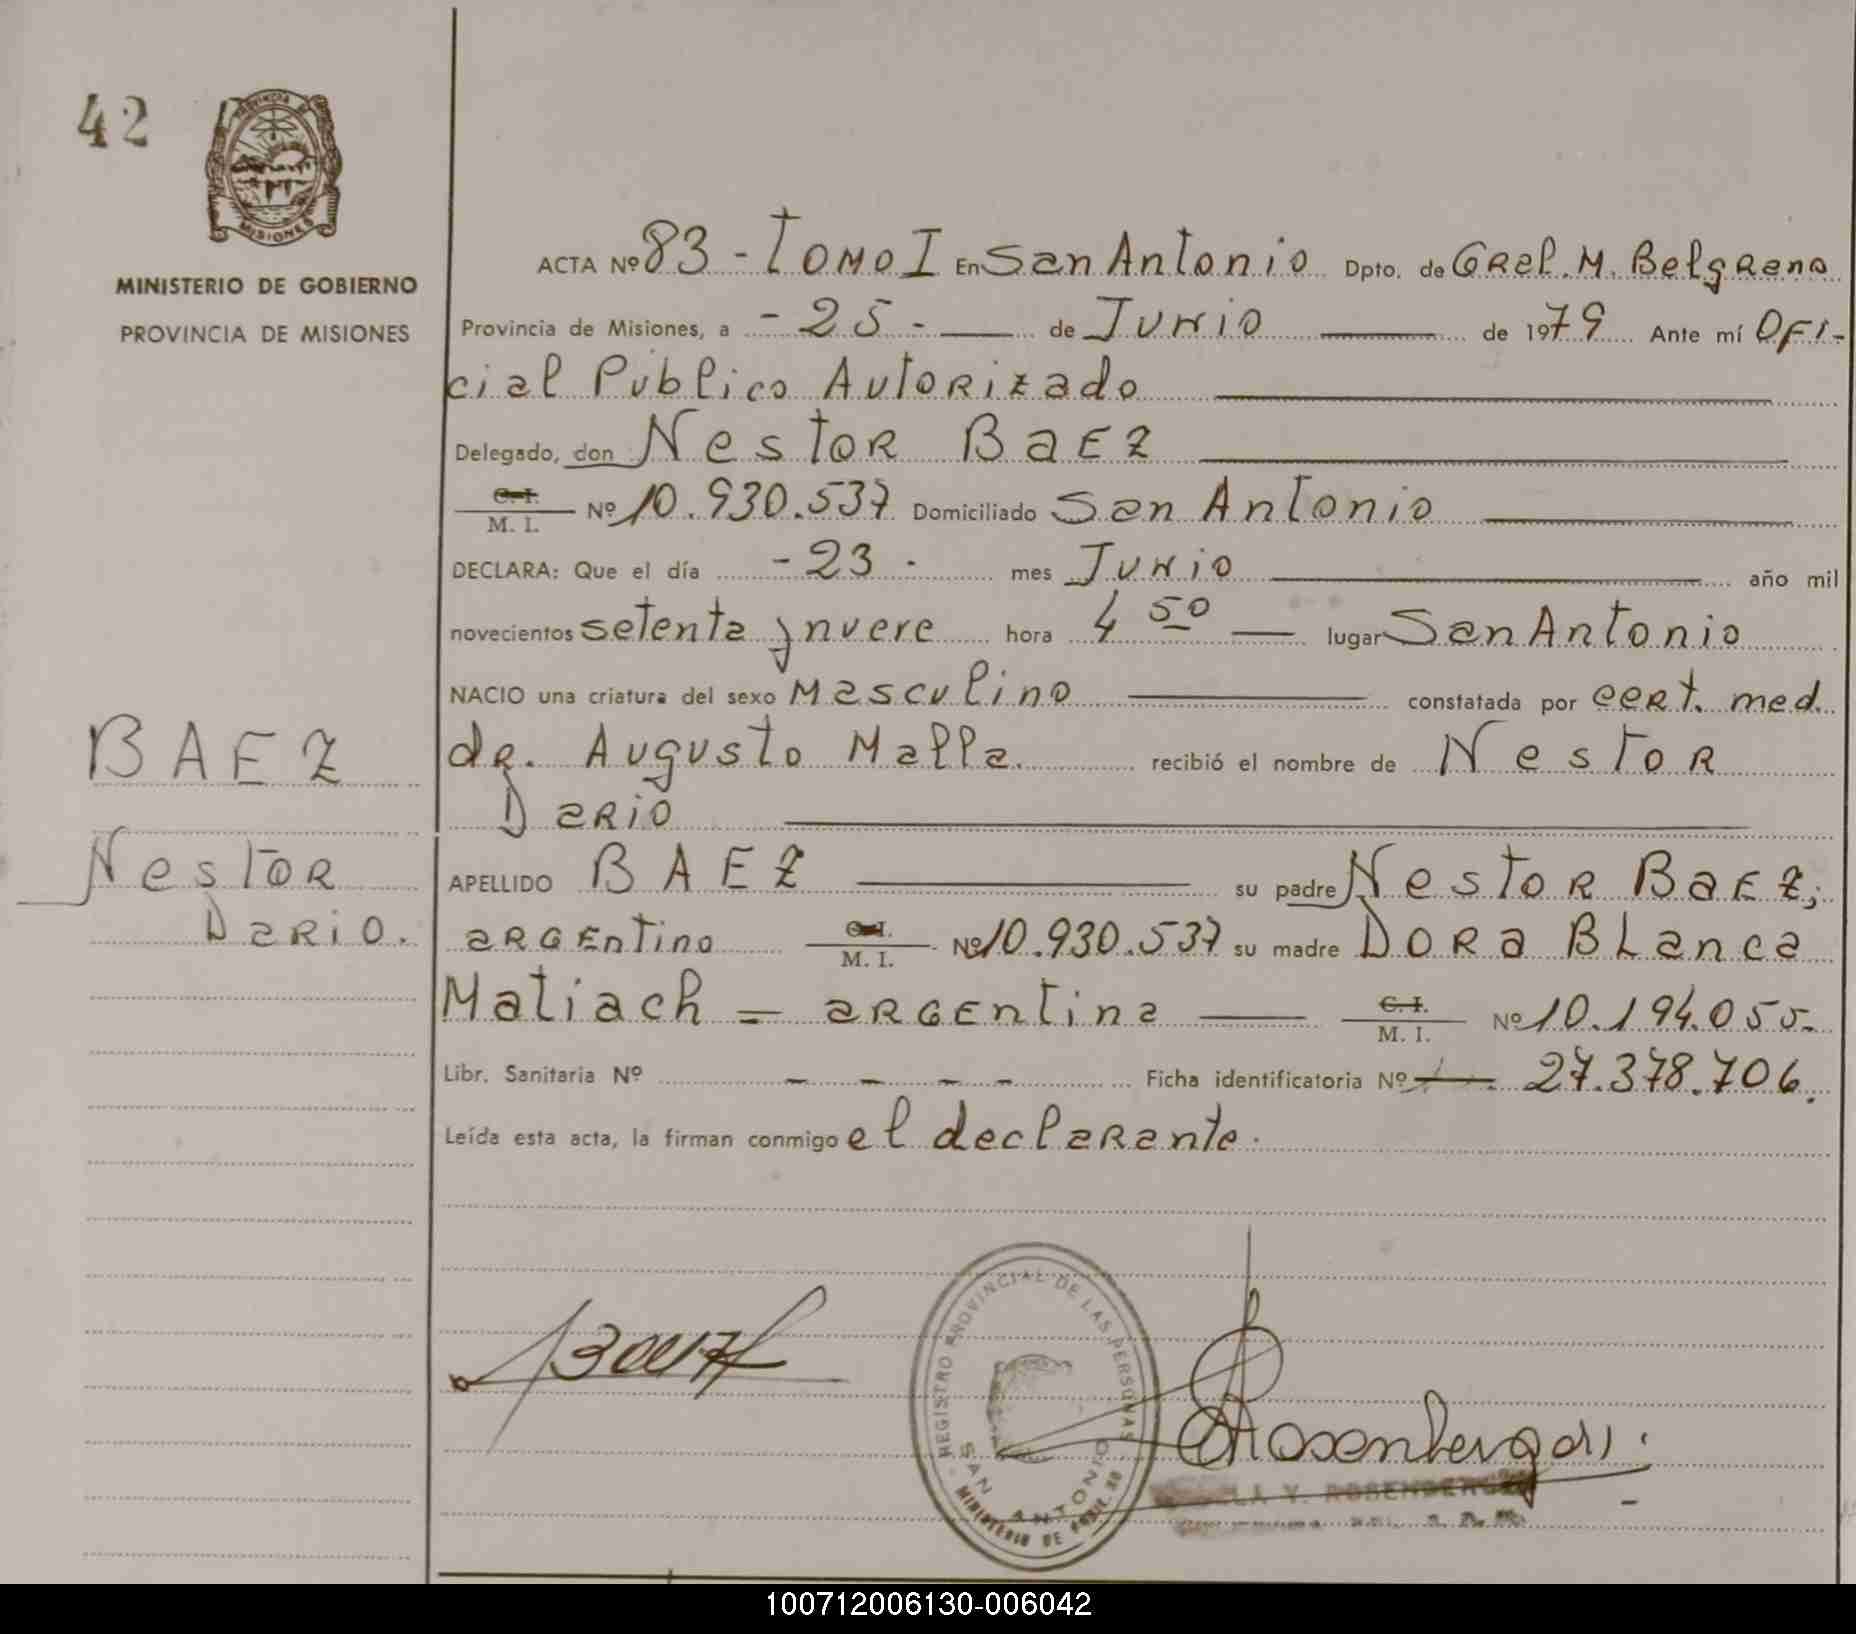 42
PROVINCIA DE
MISIONES
MINISTERIO DE GOBIERNO
PROVINCIA DE MISIONES
ACTA Nº 83 - TOMO I En San Antonio Dpto. de GRel. M. BelgRano
Provincia de Misiones, a - 25 - de Junio de 1979 Ante mí OFi-
cial Público AutoRizado
Delegado, don NestoR BaEz
C. I.
M. I. Nº 10.930.537 Domiciliado San Antonio
DECLARA: Que el día - 23 - mes Junio año mil
novecientos setenta y nueve hora 4 50 lugar San Antonio
NACIO una criatura del sexo Masculino constatada por ceRt. med.
dR. Augusto Malla. recibió el nombre de NestoR
DaRio
BAEZ
NestoR
DaRio.
APELLIDO BAEZ su padre NestoR BaEz,
aRGEntino C. I.
M. I. Nº 10.930.537 su madre DORa BLanca
Matiach = aRGEntina C. I.
M. I. Nº 10.194.055-
Libr. Sanitaria Nº - - - - Ficha identificatoria Nº 27.378.706.
Leída esta acta, la firman conmigo el declaRante.
REGISTRO PROVINCIAL DE LAS PERSONAS
SAN ANTONIO
MINISTERIO DE
Y. ROSENBERGER
100712006130-006042